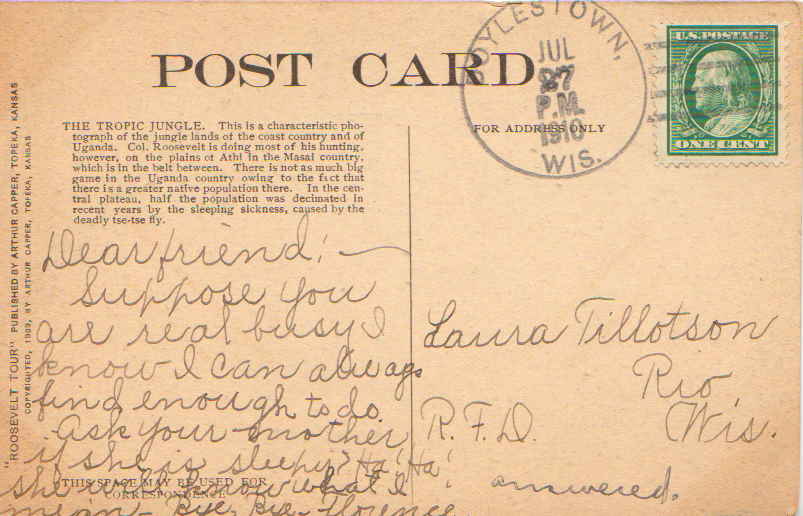 POST CARD
DOYLESTOWN,
JUL
27
P.M.
1910
WIS.
U.S. POSTAGE
ONE CENT
"ROOSEVELT TOUR" PUBLISHED BY ARTHUR CAPPER, TOPEKA, KANSAS
COPYRIGHTED, 1909, BY ARTHUR CAPPER, TOPEKA, KANSAS
THE TROPIC JUNGLE. This is a characteristic pho-
tograph of the jungle lands of the coast country and of
Uganda. Col. Roosevelt is doing most of his hunting,
however, on the plains of Athi in the Masai country,
which is in the belt between. There is not as much big
game in the Uganda country owing to the fact that
there is a greater native population there. In the cen-
tral plateau, half the population was decimated in
recent years by the sleeping sickness, caused by the
deadly tse-tse fly.
FOR ADDRESS ONLY
Dear friend:—
Suppose you
are real busy I
know I can always
find enough to do.
Ask your mother
if she is sleepy? Ha! Ha!
she will know what I
mean – Bye, Bye – Florence
THIS SPACE MAY BE USED FOR
CORRESPONDENCE
Laura Tillotson
Rio,
R.F.D. Wis.
answered.